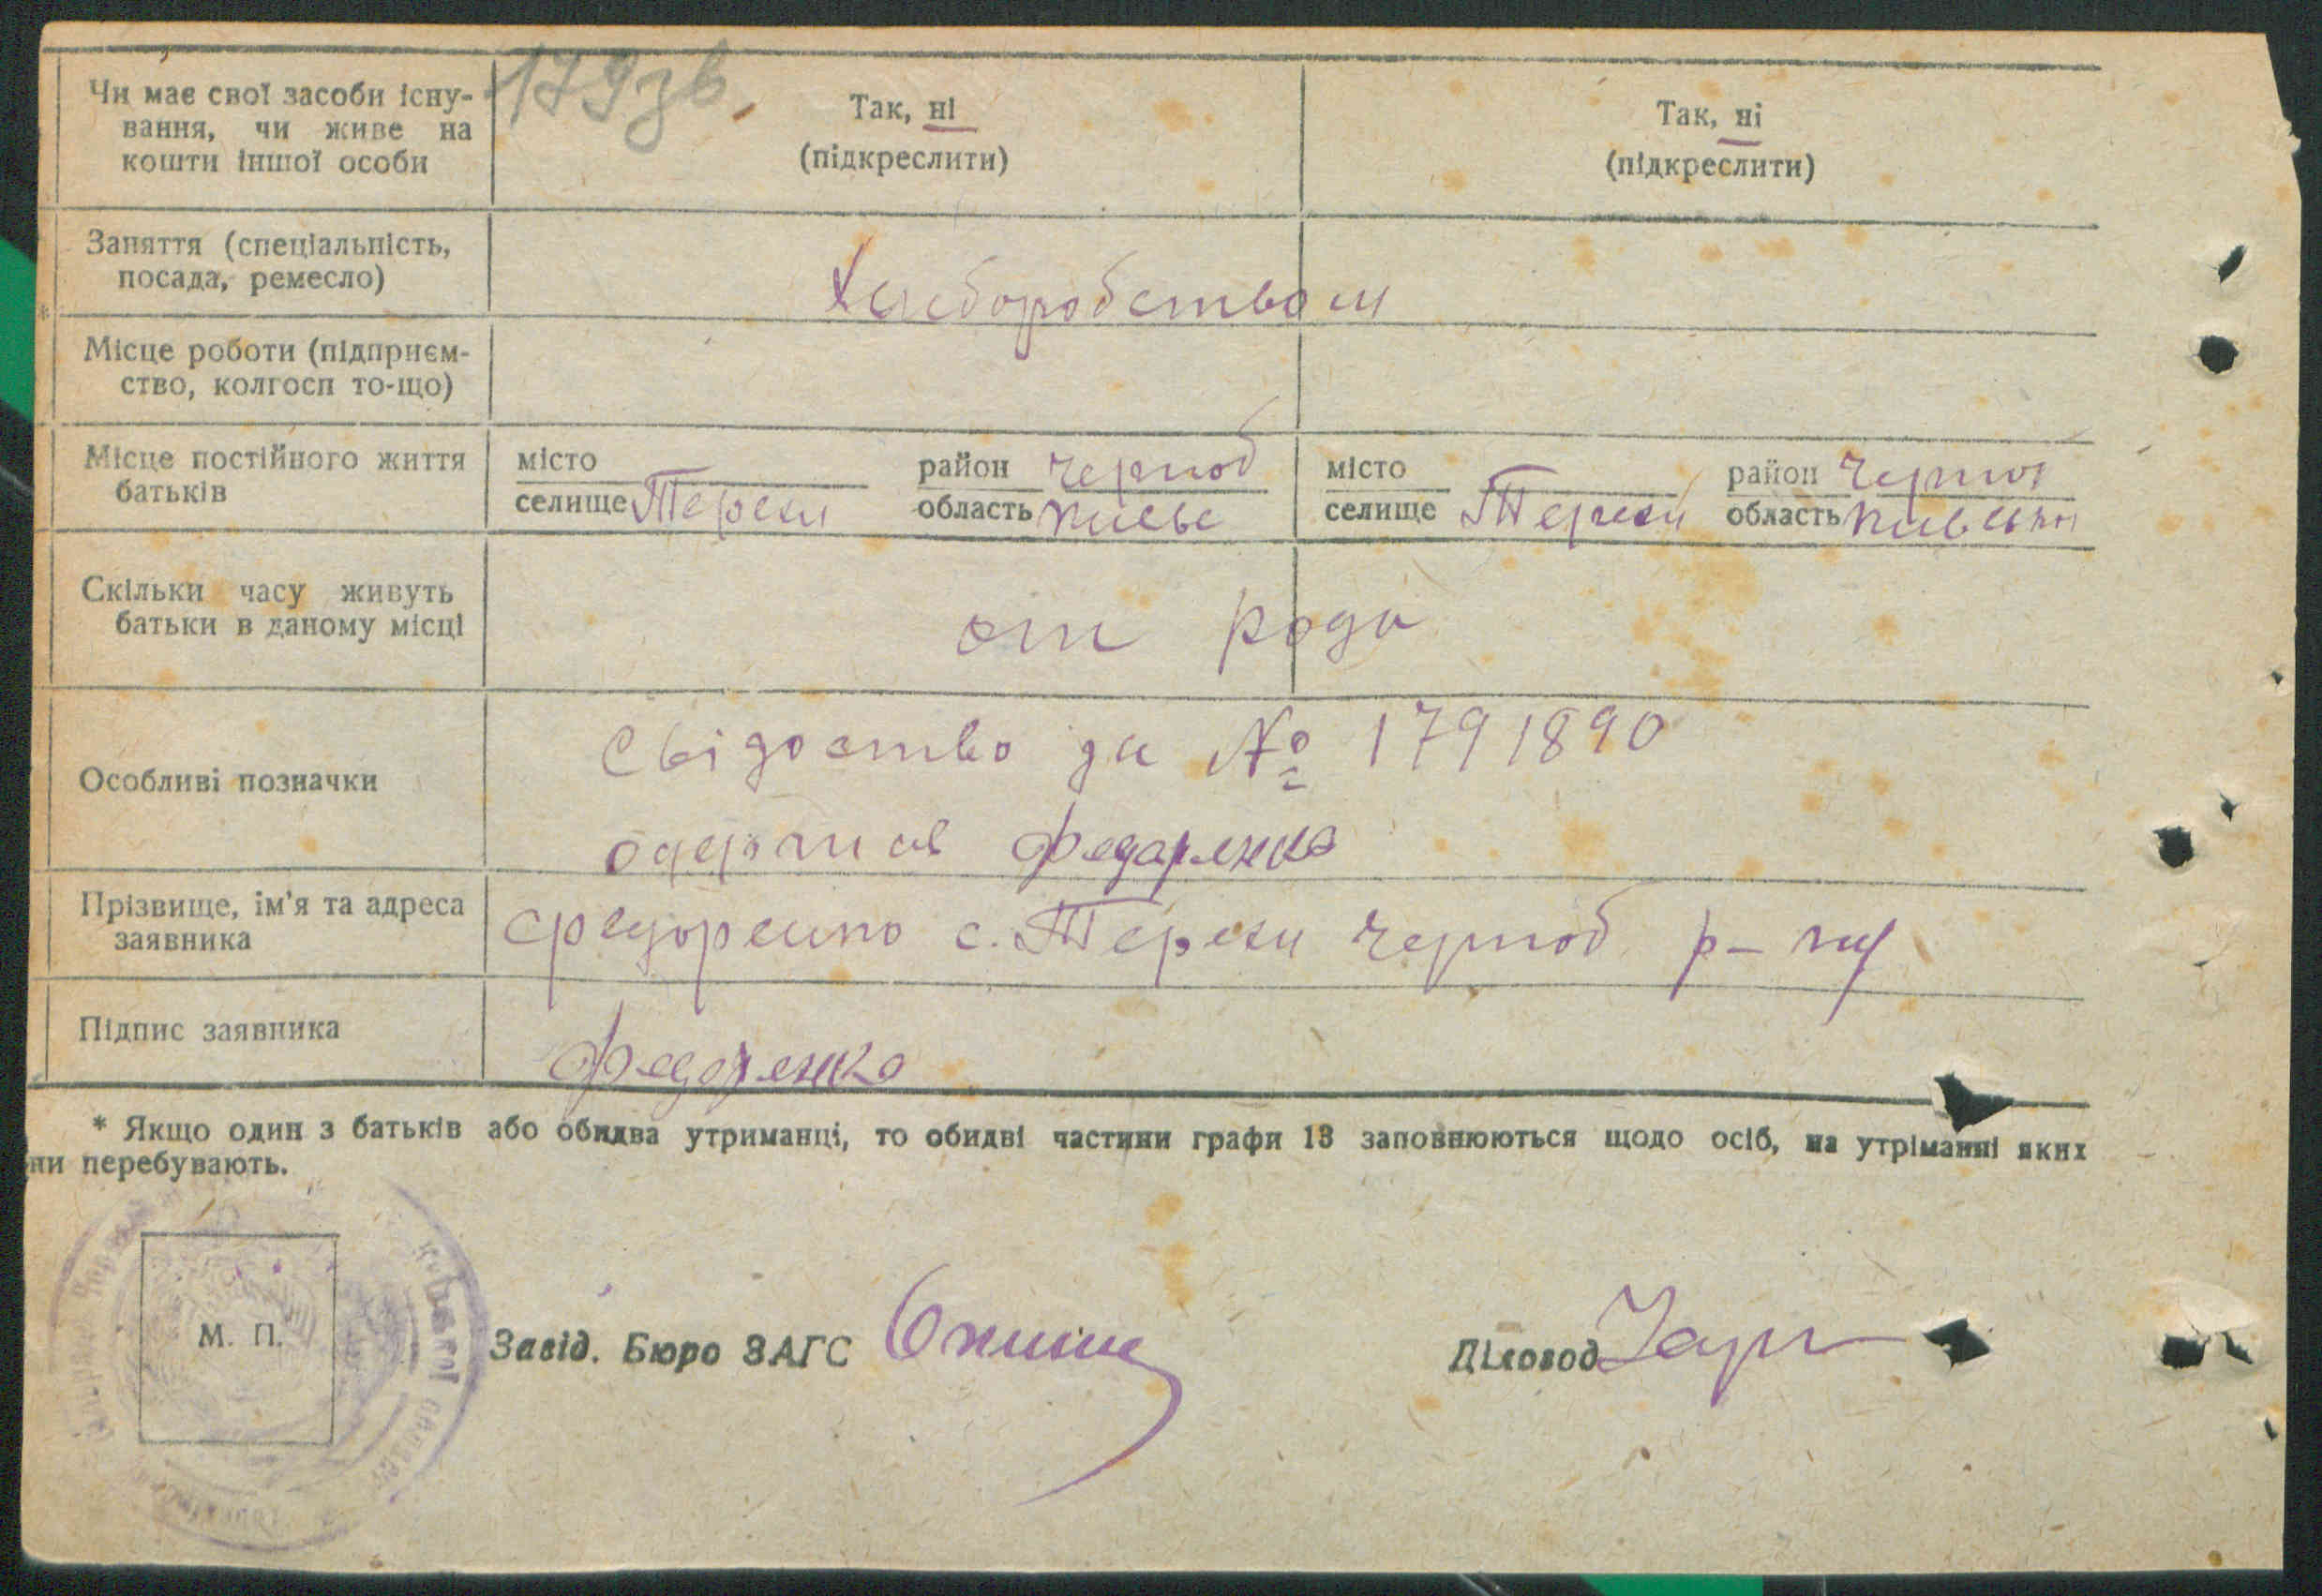 179 зв.
Чи має свої засоби існу-
вання, чи живе на
кошти іншої особи
Так, ні
(підкреслити)
Так, ні
(підкреслити)
Заняття (спеціальність,
посада, ремесло)
Хлеборобством
*
Місце роботи (підприєм-
ство, колгосп то-що)
Місце постійного життя
батьків
місто
селище Терехи
район Черноб
область Киевс
місто
селище Терехи
район Черноб
область
Скільки часу живуть
батьки в даному місці
от рода
Особливі позначки
Свідоство за № 1791890
одержав Федаренко
Прізвище, ім'я та адреса
заявника
Федоренко с. Терехи Черноб р-ну
Підпис заявника
Федоренко
* Якщо один з батьків або обидва утриманці, то обидві частини графи 13 заповнюються щодо осіб, на утріманні яких
ни перебувають.
М. П.
Завід. Бюро ЗАГС
Діловод